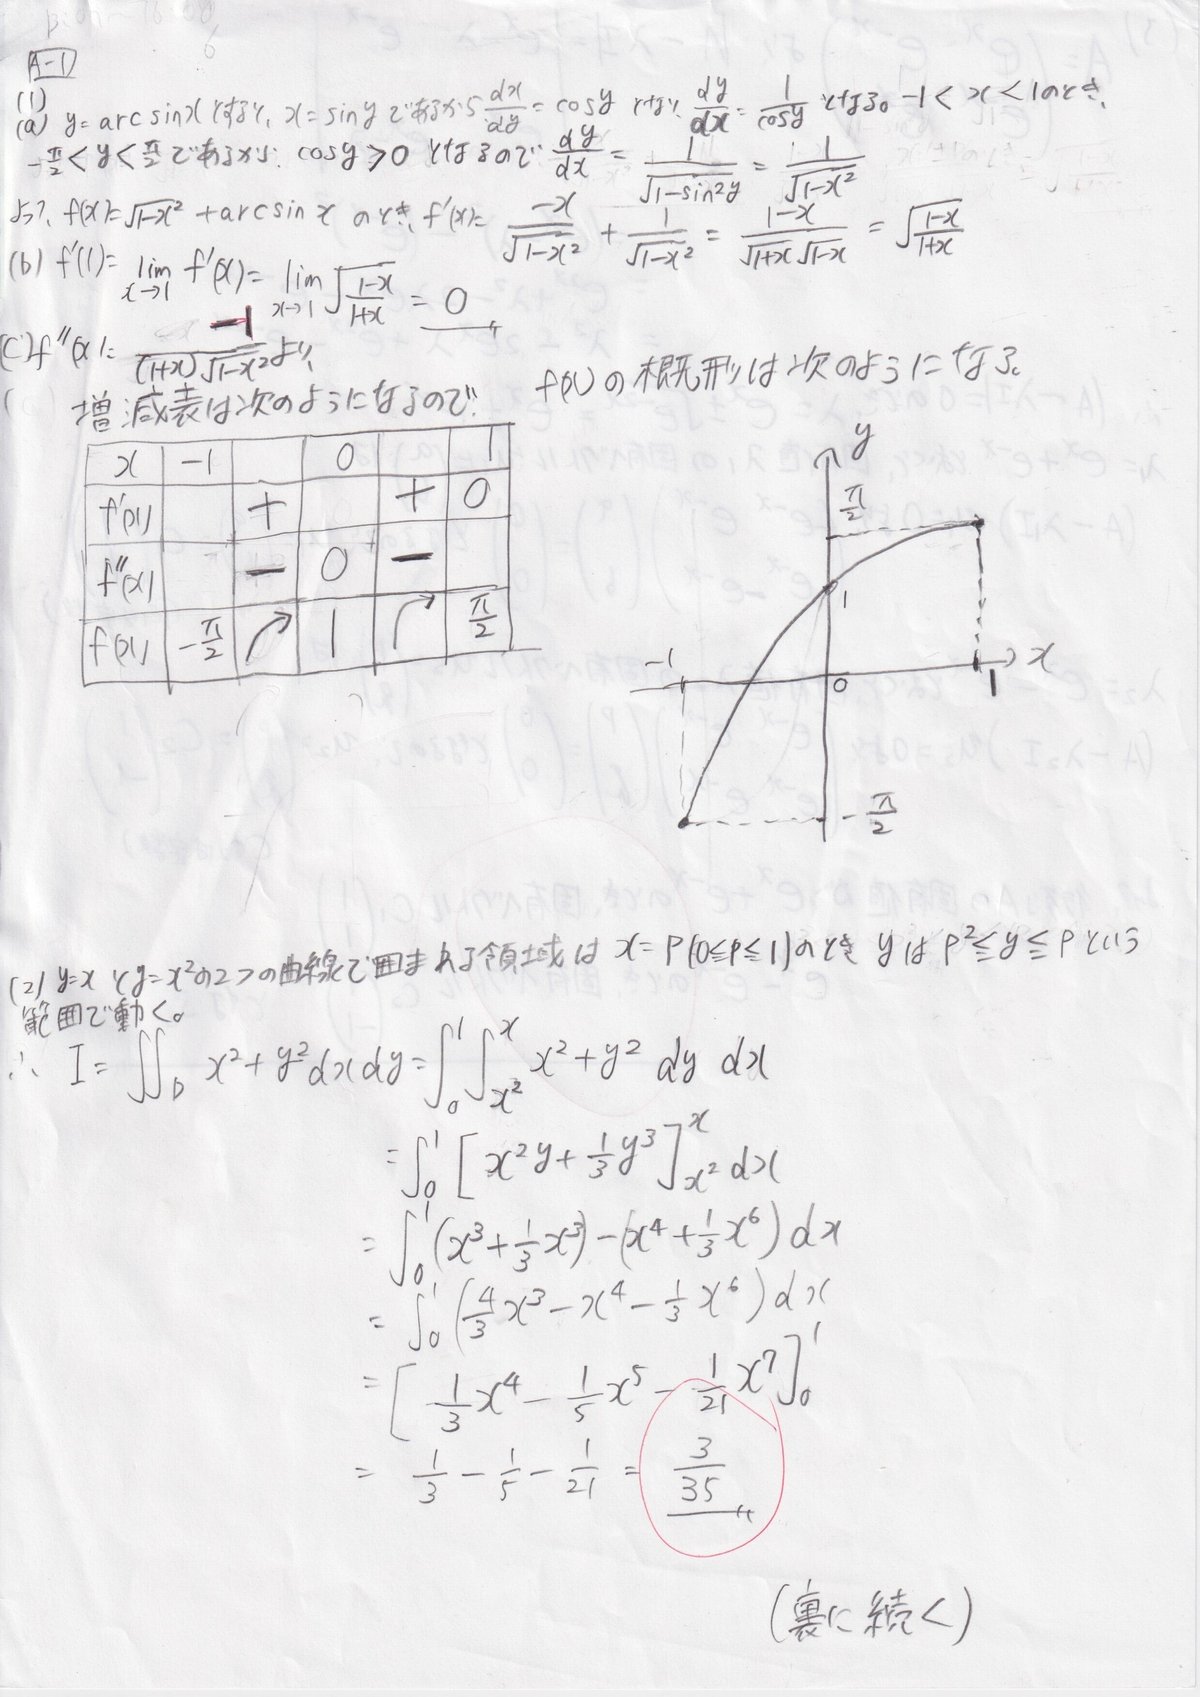 A-1
(1)
(a) y=arcsinxとすると、x=sinyであるからdx/dy=cosyとなり、dy/dx=1/cosyとなる。-1<x<1のとき、
-π/2<y<π/2であるから、cosy>0となるので dy/dx=1/√(1-sin²y)=1/√(1-x²)
よって、f(x)=√(1-x²)+arcsinxのとき、f'(x)=-x/√(1-x²)+1/√(1-x²)=(1-x)/(√(1+x)√(1-x))=√((1-x)/(1+x))
(b) f'(1)=lim_{x→1} f'(x)=lim_{x→1}√((1-x)/(1+x))=0
(C) f''(x)=-1/((1+x)√(1-x²))より、
増減表は次のようになるので、
f(x)の概形は次のようになる。
x -1 0 1
f'(x) + + 0
f''(x) - 0 -
f(x) -π/2 1 π/2
y
π/2
1
-1 0 1 x
-π/2
(2) y=xとy=x²の2つの曲線で囲まれる領域はx=p(0≦p≦1)のときyはp²≦y≦pという
範囲で動く。
∴ I=∬_D x²+y²dxdy=∫₀¹∫_{x²}^{x} x²+y² dy dx
=∫₀¹[x²y+1/3y³]_{x²}^{x}dx
=∫₀¹(x³+1/3x³)-(x⁴+1/3x⁶)dx
=∫₀¹(4/3x³-x⁴-1/3x⁶)dx
=[1/3x⁴-1/5x⁵-1/21x⁷]₀¹
=1/3-1/5-1/21=3/35
(裏に続く)